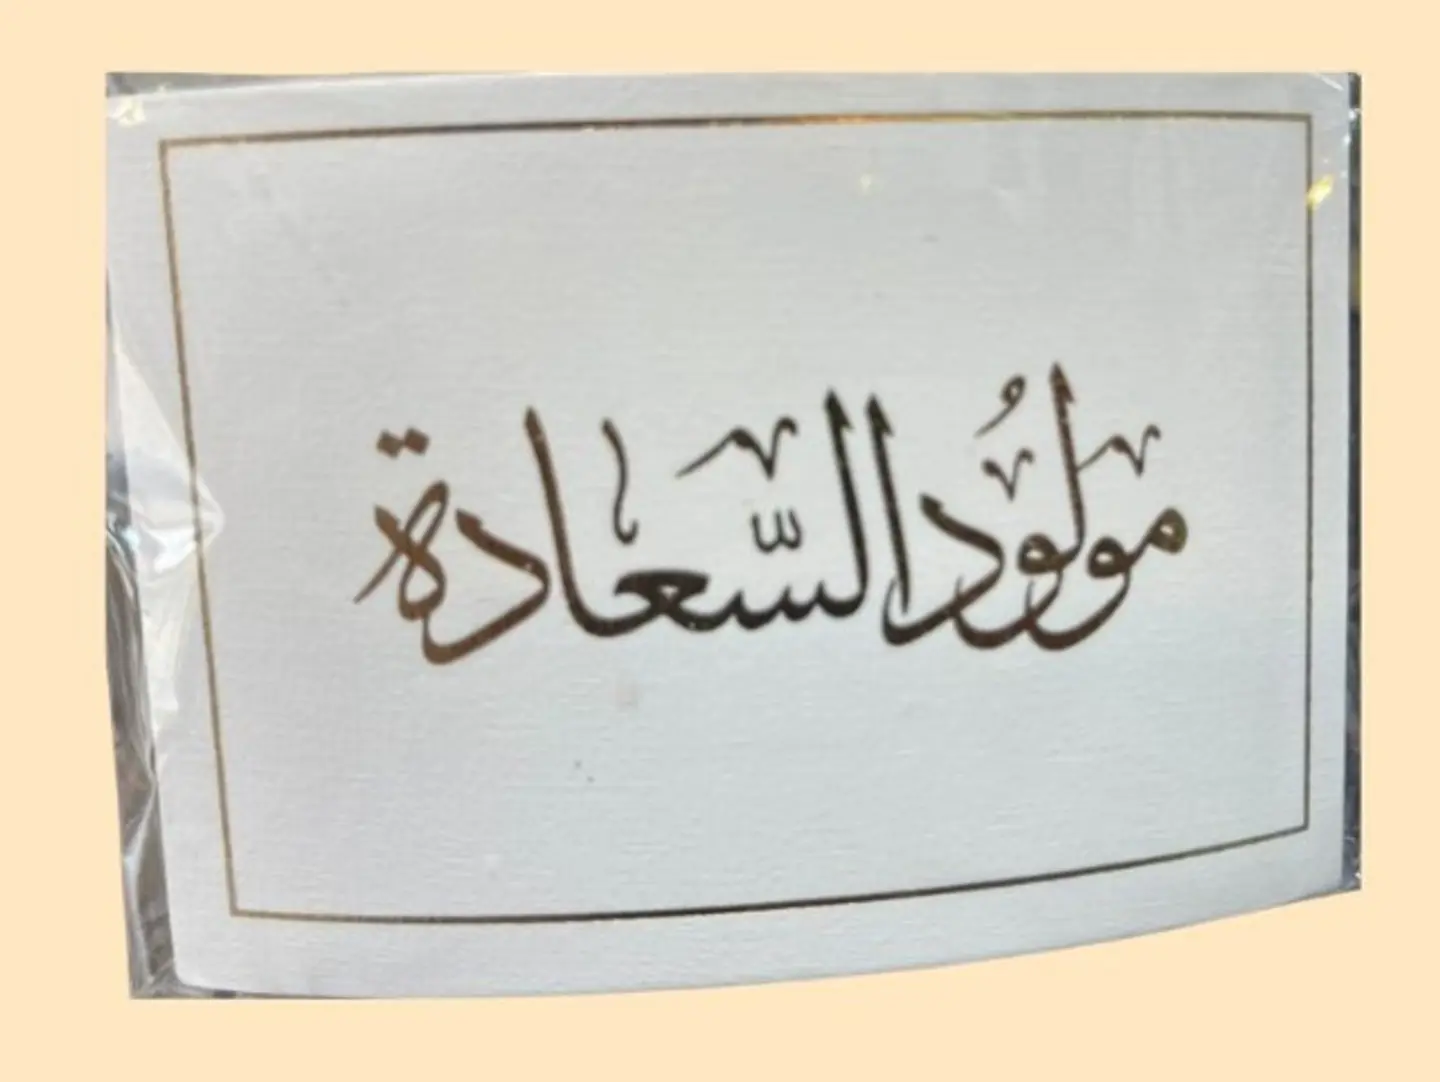 مولُود السّعادة